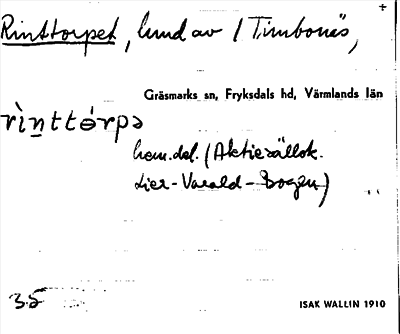 Rinttorpet, lund av / Timbonäs,
Gräsmarks sn, Fryksdals hd, Värmlands län
rìn̲ttɵ́rpə
hem.del. (Aktiesällsk.
Lier-Varald-Bogen)
35
ISAK WALLIN 1910